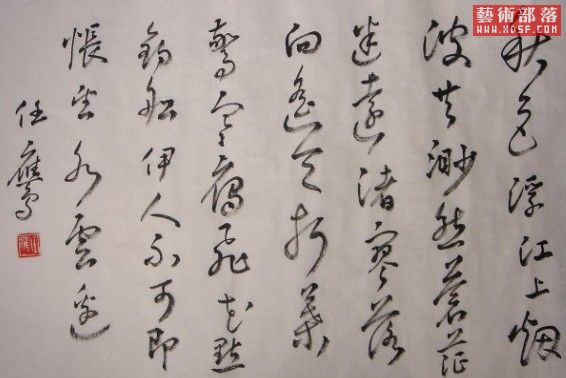 藝術部落
www.xdsf.com
秋色浮江上烟
波共渺然蒼茫
迷遠渚寥落
向遙天折葦
驚寒雁飛花點
釣船伊人不可即
悵望水雲邊
任鷹